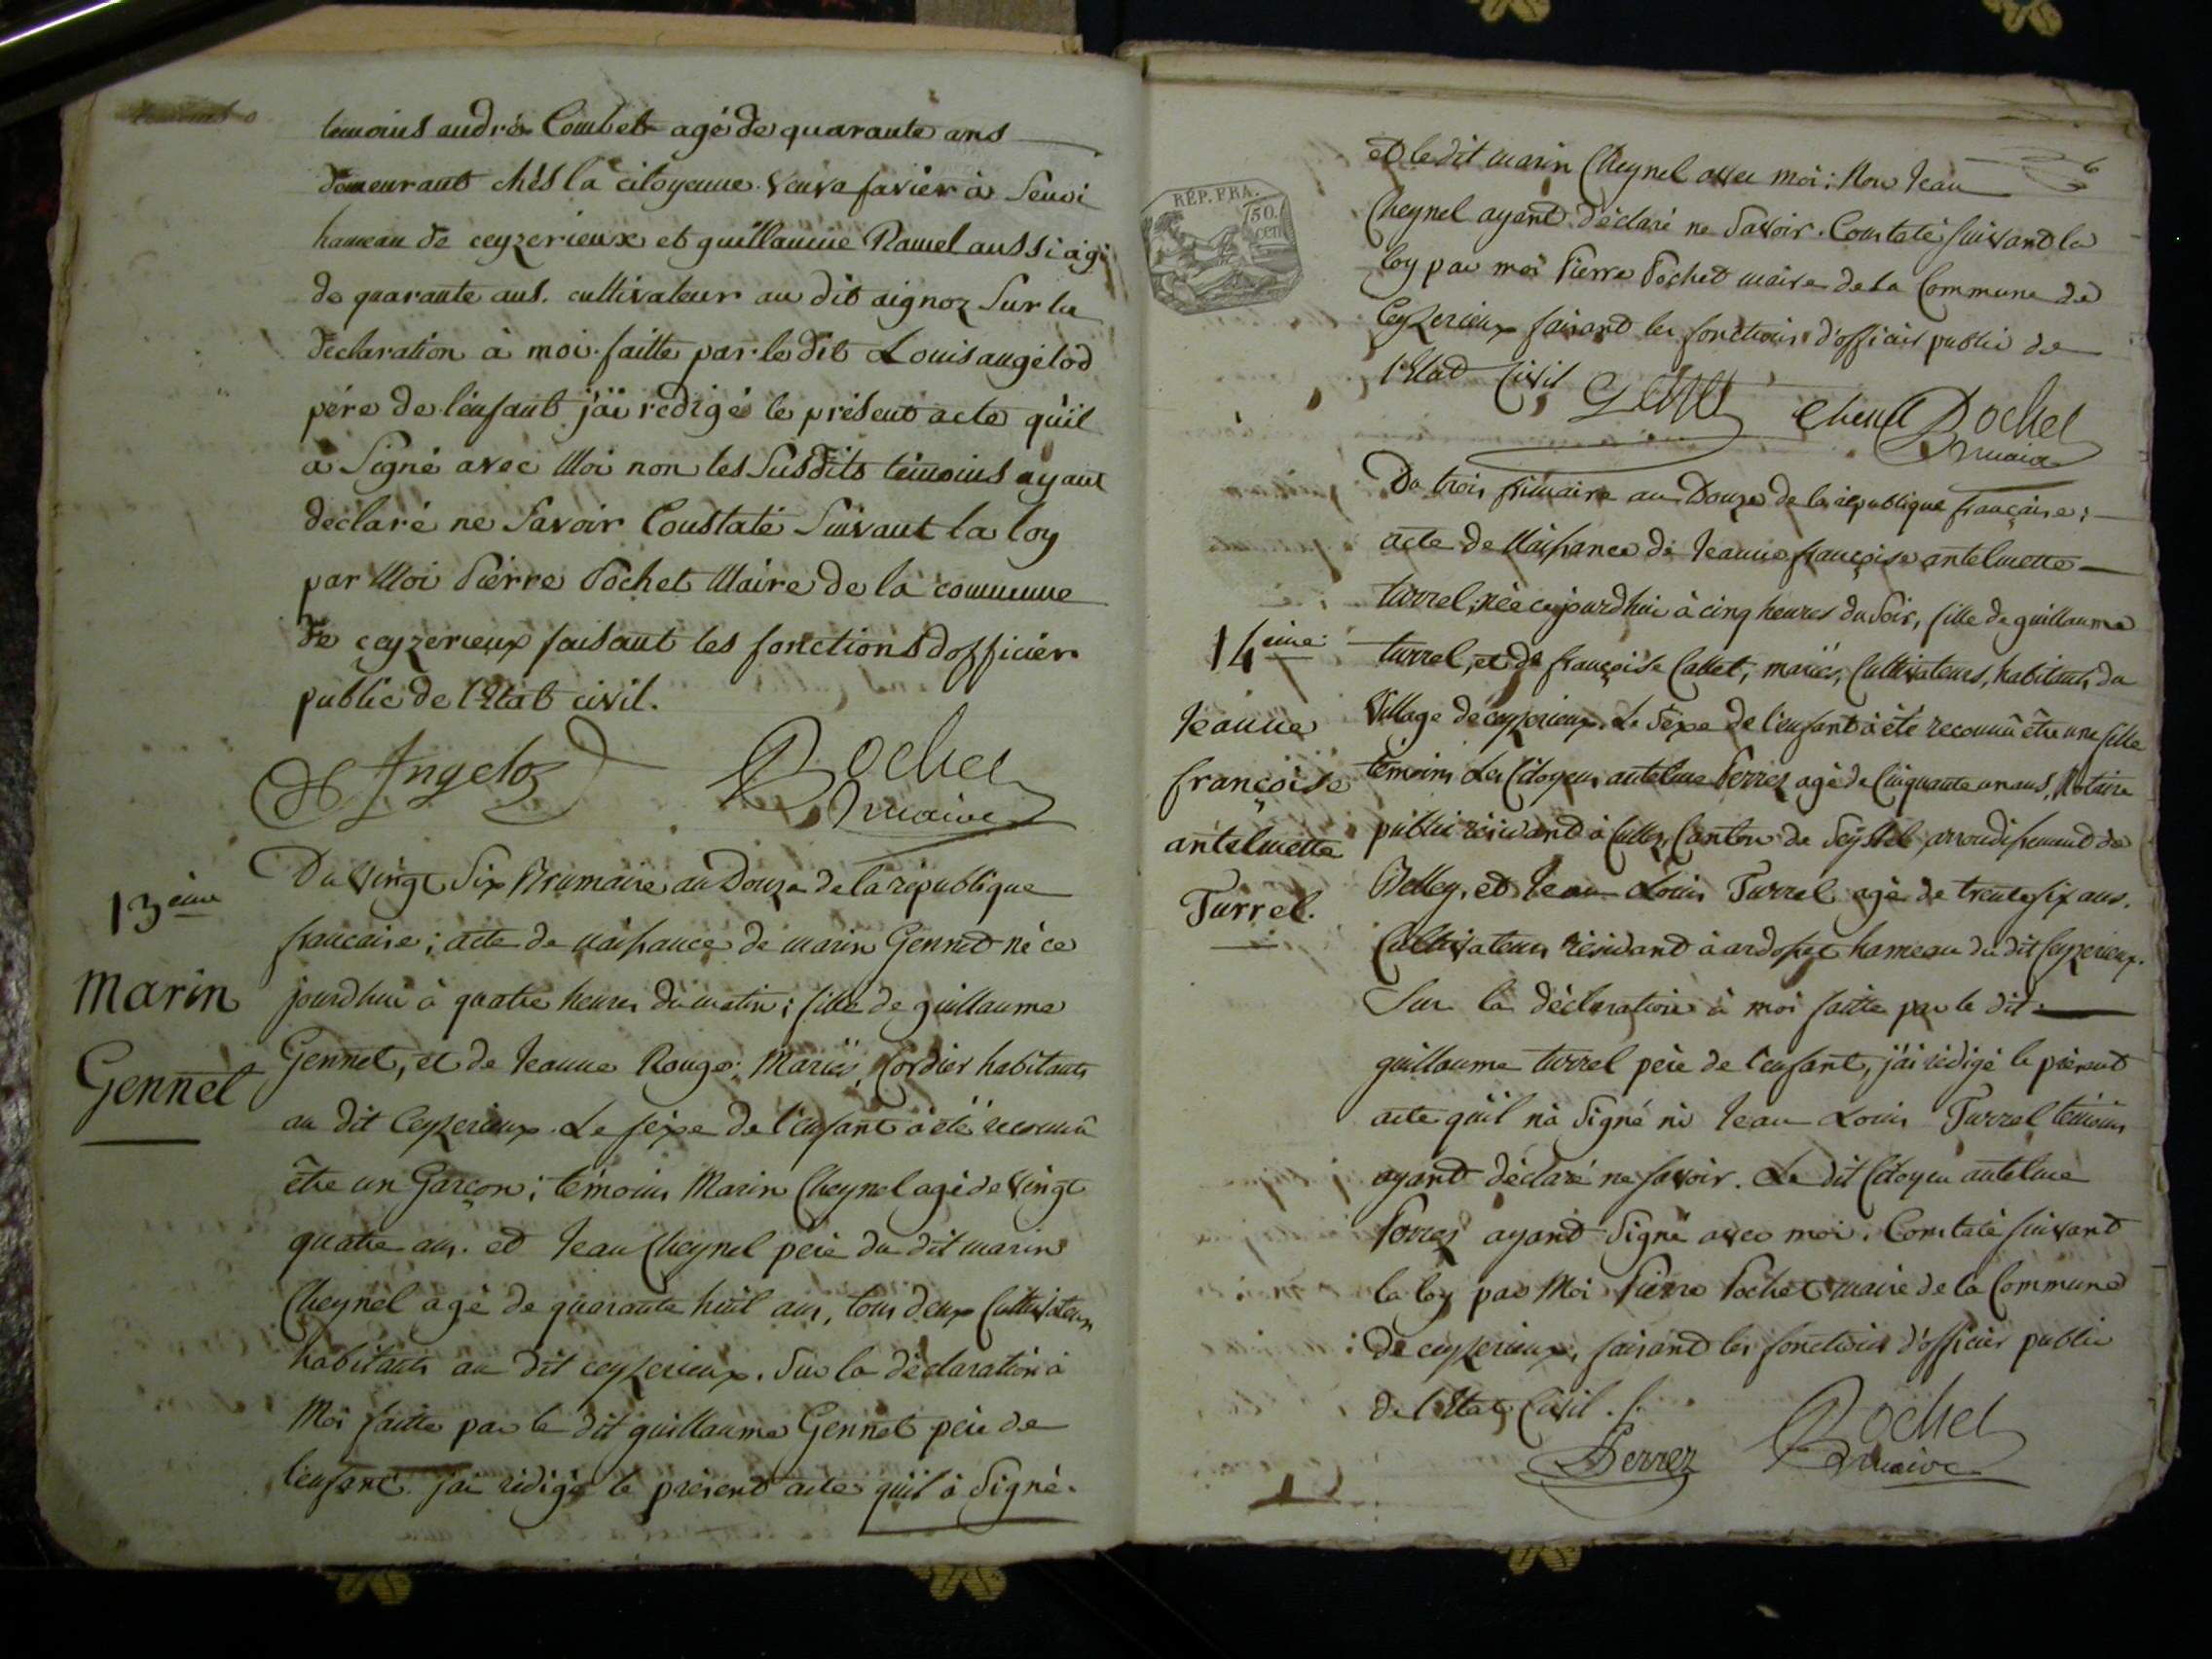 temoins andré Combet agé de quarante ans
demeurant chés la citoyenne veuve favier à
hameau de ceyzerieux et guillaume Ramel aussi agé
de quarante ans. cultivateur au dit aignoz Sur la
déclaration à moi faitte par le dit Louis angelod
pére de l'enfant j'ai redigé le présent acte qu'il
a Signé avec Moi non les Susdits témoins ayant
déclaré ne Savoir Constaté Suivant la loy
par Moi Pierre Pochet Maire de la commune
de ceyzerieux faisant les fonctions d'officier
public de l'Etat civil.
Angeloz
Pochet
maire
13eme
Marin
Gennet
Du vingt Six Brumaire an Douze de la république
francaise; acte de naissance de marin Gennet né ce
jourd'hui à quatre heures du matin; fille de guillaume
Gennet, et de Jeanne Rouge; Mariés, Cordier habitants
au dit Ceyzerieux. Le séxe de l'enfant à été reconnû
être un Garçon; témoins Marin Cheynel agé de vingt
quatre ans. et Jean Cheynel pére du dit marin
Cheynel agé de quarante huit ans, tous deux Cultivateurs
habitants au dit ceyzerieux. Sur la déclaration à
Moi faitte par le dit guillaume Gennet pére de
l'enfant j'ai rédigé le présent acte qu'il à Signé.
6
et le dit marin Cheynel avec moi; Non Jean
RÉP. FRA.
50.
cen
Cheynel ayant déclaré ne Savoir. Constaté suivant la
loy par moi Pierre Pochet maire de la Commune de
Ceyzerieux faisant les fonctions d'officier public de
l'Etat Civil
Pochet
maire
Du trois frimaire an Douze de la république française;
acte de Naissance de Jeanne françoise antelmette
turrel, née cejourd'hui à cinq heures du Soir, fille de guillaume
14eme
turrel, et de françoise Callet, mariés, Cultivateurs, habitants du
Jeanne
Village de ceyzerieux. Le Séxe de l'enfant à été reconnû être une fille
françoise
temoins Les Citoyens antelme Perrez agé de Cinquante un ans, Notaire
antelmette
public résidant à Culloz, Canton de Seyssel, arrondissement de
Turrel.
Belley, et Jean Louis Turrel agé de trente six ans.
Cultivateurs résidant à ardosset hameau du dit Ceyzerieux.
Sur la déclaration à moi faitte par le dit
guillaume turrel pére de l'enfant, j'ai rédigé le présent
acte qu'il n'à Signé ni Jean Louis Turrel témoins
ayant déclaré ne savoir. Le dit Citoyen antelme
Perrez ayant Signé avec moi. Constaté suivant
la loy par Moi Pierre Pochet maire de la Commune
de ceyzerieux, faisant les fonctions d'officier public
de l'Etat Civil.
Perrez
Pochet
maire